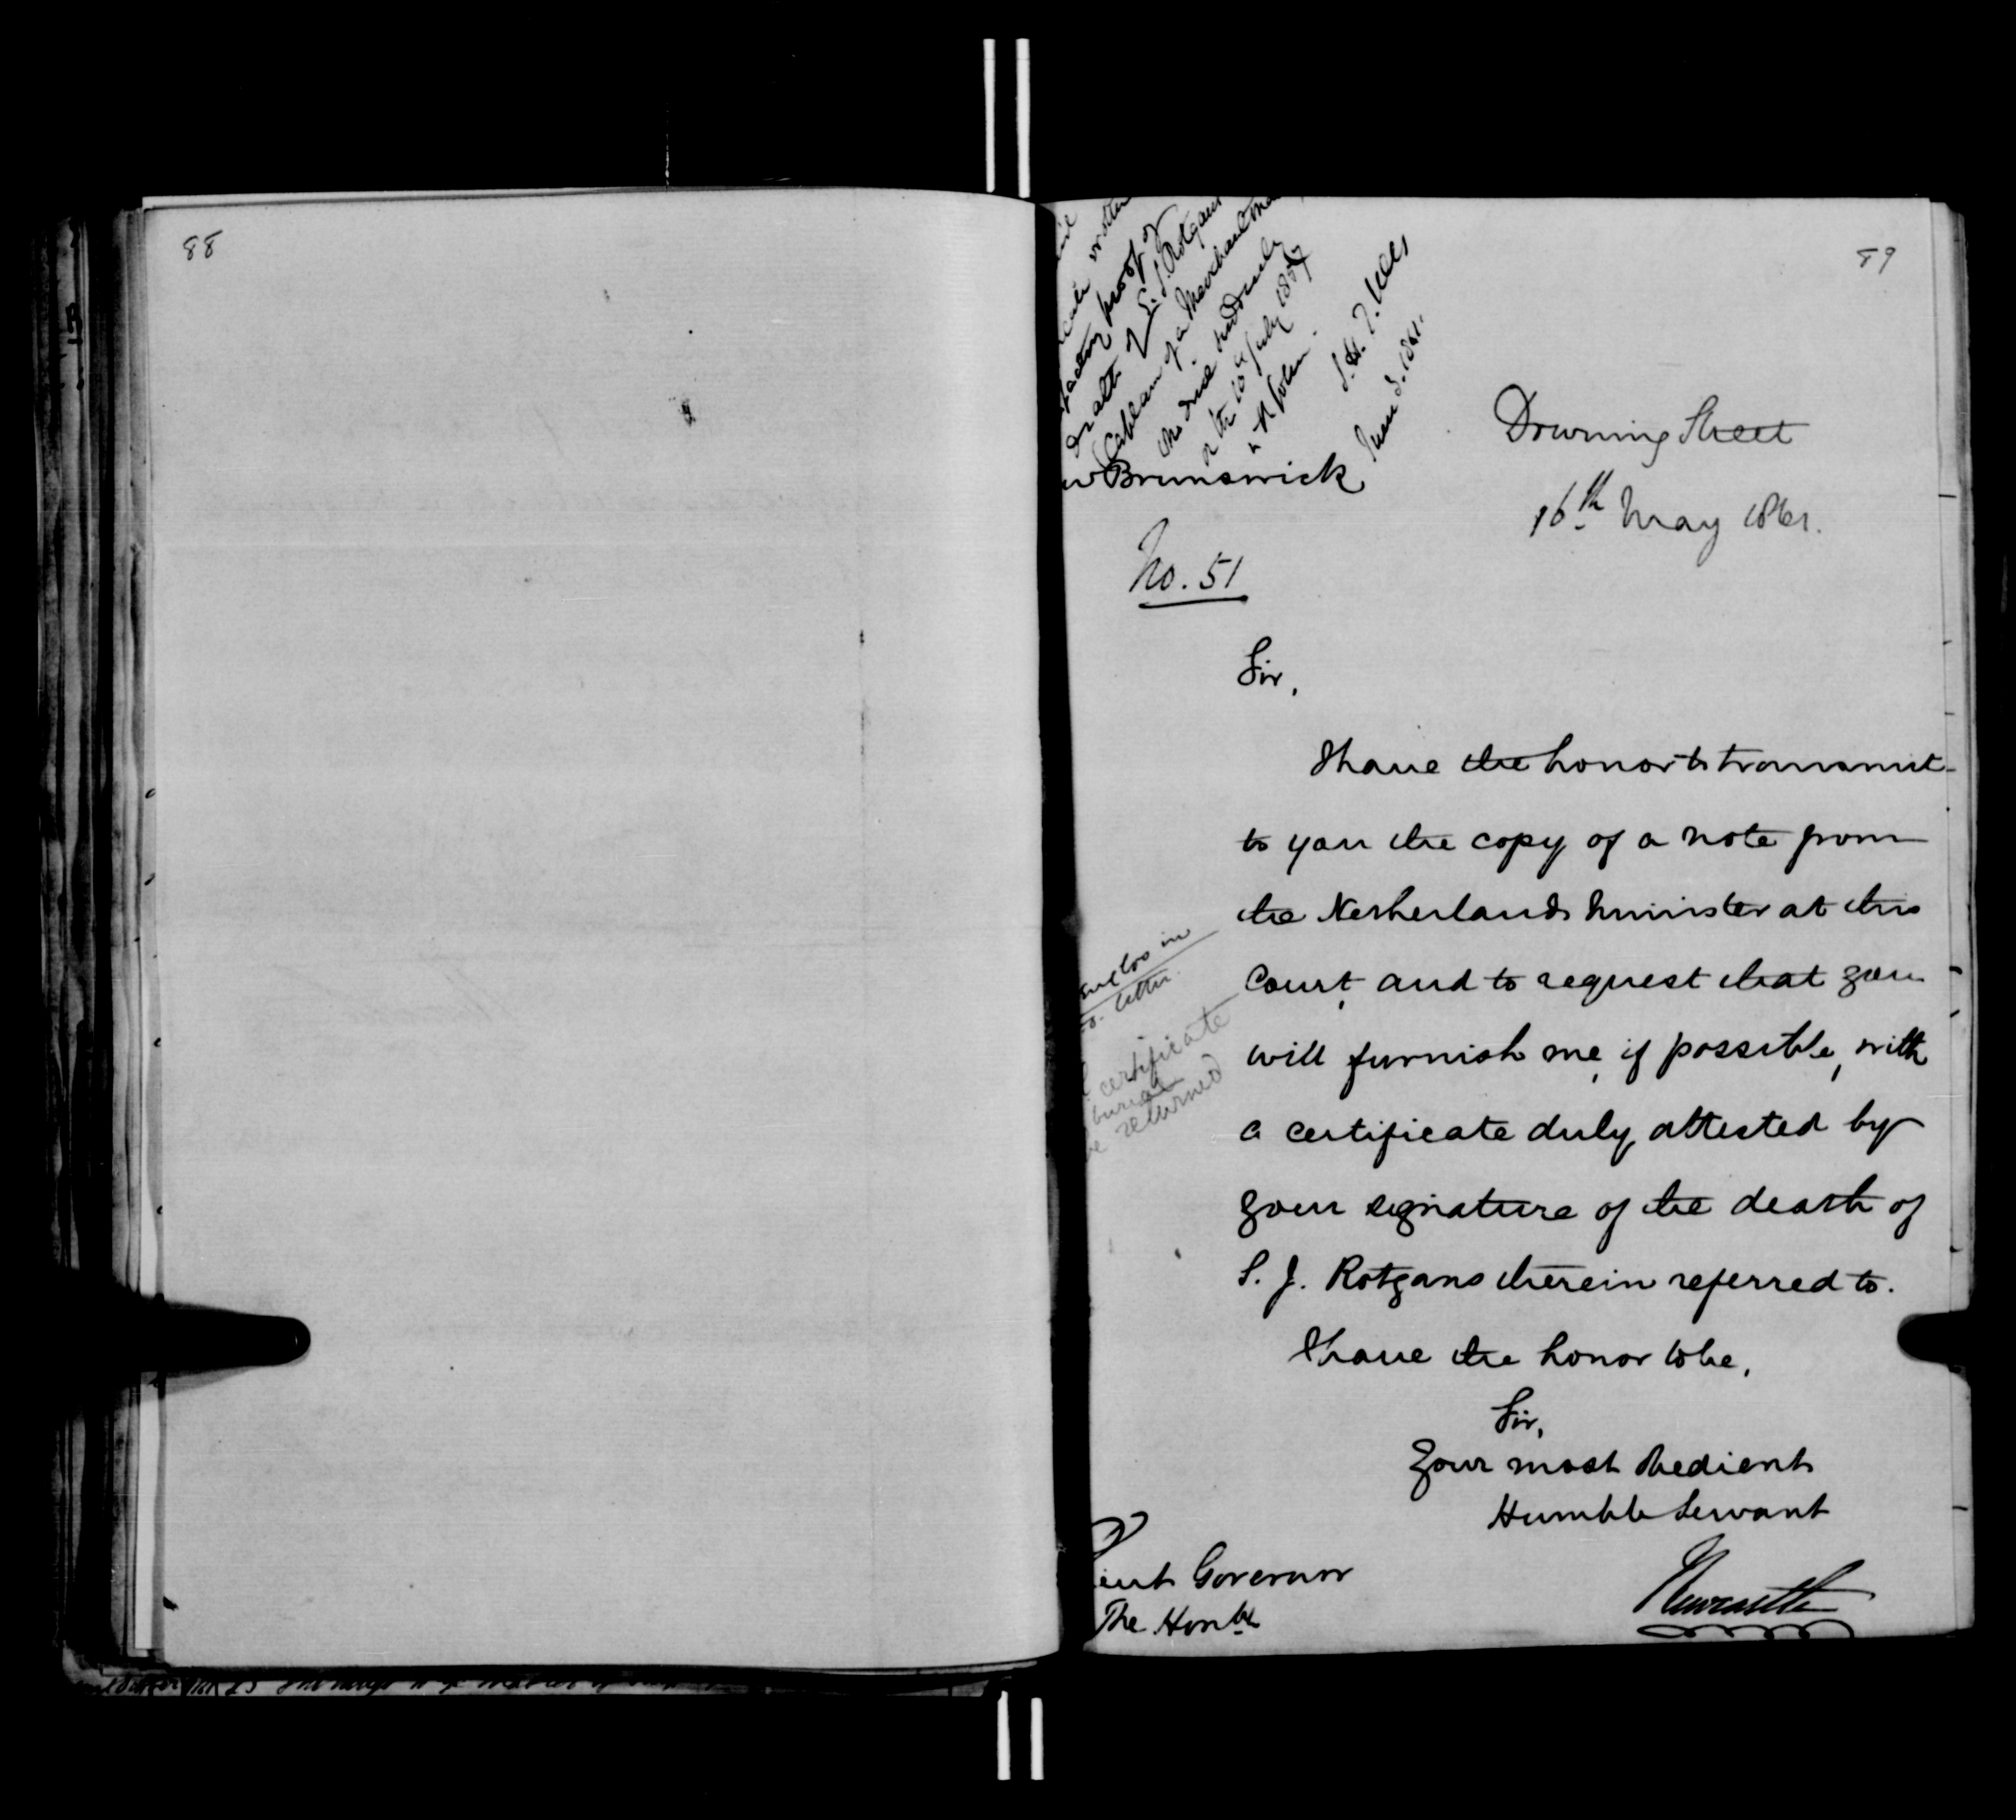 88
89
proof of
death of S. J. Rotgans
Captain of a Merchantman
who died suddenly
on the 10th July 1857
June 3. 1861.
Brunswick
Downing Street
16th May 1861.
No. 51
Sir,
I have the honor to transmit
to you the copy of a note from
the Netherlands Minister at this
Court, and to request that you
will furnish me, if possible, with
a certificate duly attested by
your signature of the death of
S. J. Rotgans therein referred to.
in
letter.
certificate
burial
returned
I have the honor to be,
Sir,
Your most obedient
Humble Servant
Newcastle
Governor
The Honble